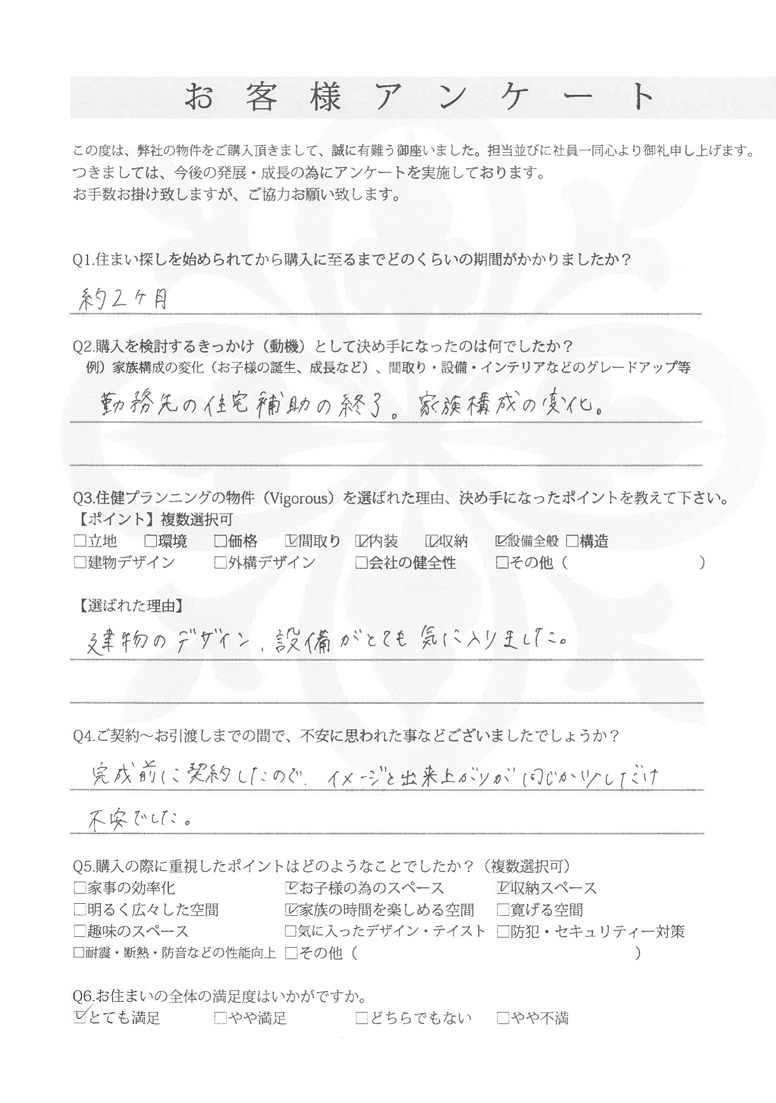 お客様アンケート
この度は、弊社の物件をご購入頂きまして、誠に有難う御座いました。担当並びに社員一同心より御礼申し上げます。
つきましては、今後の発展・成長の為にアンケートを実施しております。
お手数お掛け致しますが、ご協力お願い致します。
Q1.住まい探しを始められてから購入に至るまでどのくらいの期間がかかりましたか？
約2ヶ月
Q2.購入を検討するきっかけ（動機）として決め手になったのは何でしたか？
例）家族構成の変化（お子様の誕生、成長など）、間取り・設備・インテリアなどのグレードアップ等
勤務先の住宅補助の終了。家族構成の変化。
Q3.住健プランニングの物件（Vigorous）を選ばれた理由、決め手になったポイントを教えて下さい。
【ポイント】複数選択可
□立地 □環境 □価格 ☑間取り ☑内装 ☑収納 ☑設備全般 □構造
□建物デザイン □外構デザイン □会社の健全性 □その他（ ）
【選ばれた理由】
建物のデザイン、設備がとても気に入りました。
Q4.ご契約～お引渡しまでの間で、不安に思われた事などございましたでしょうか？
完成前に契約したので、イメージと出来上がりが同じか少しだけ
不安でした。
Q5.購入の際に重視したポイントはどのようなことでしたか？（複数選択可）
□家事の効率化 ☑お子様の為のスペース ☑収納スペース
□明るく広々した空間 ☑家族の時間を楽しめる空間 □寛げる空間
□趣味のスペース □気に入ったデザイン・テイスト □防犯・セキュリティー対策
□耐震・断熱・防音などの性能向上 □その他（ ）
Q6.お住まいの全体の満足度はいかがですか。
☑とても満足 □やや満足 □どちらでもない □やや不満